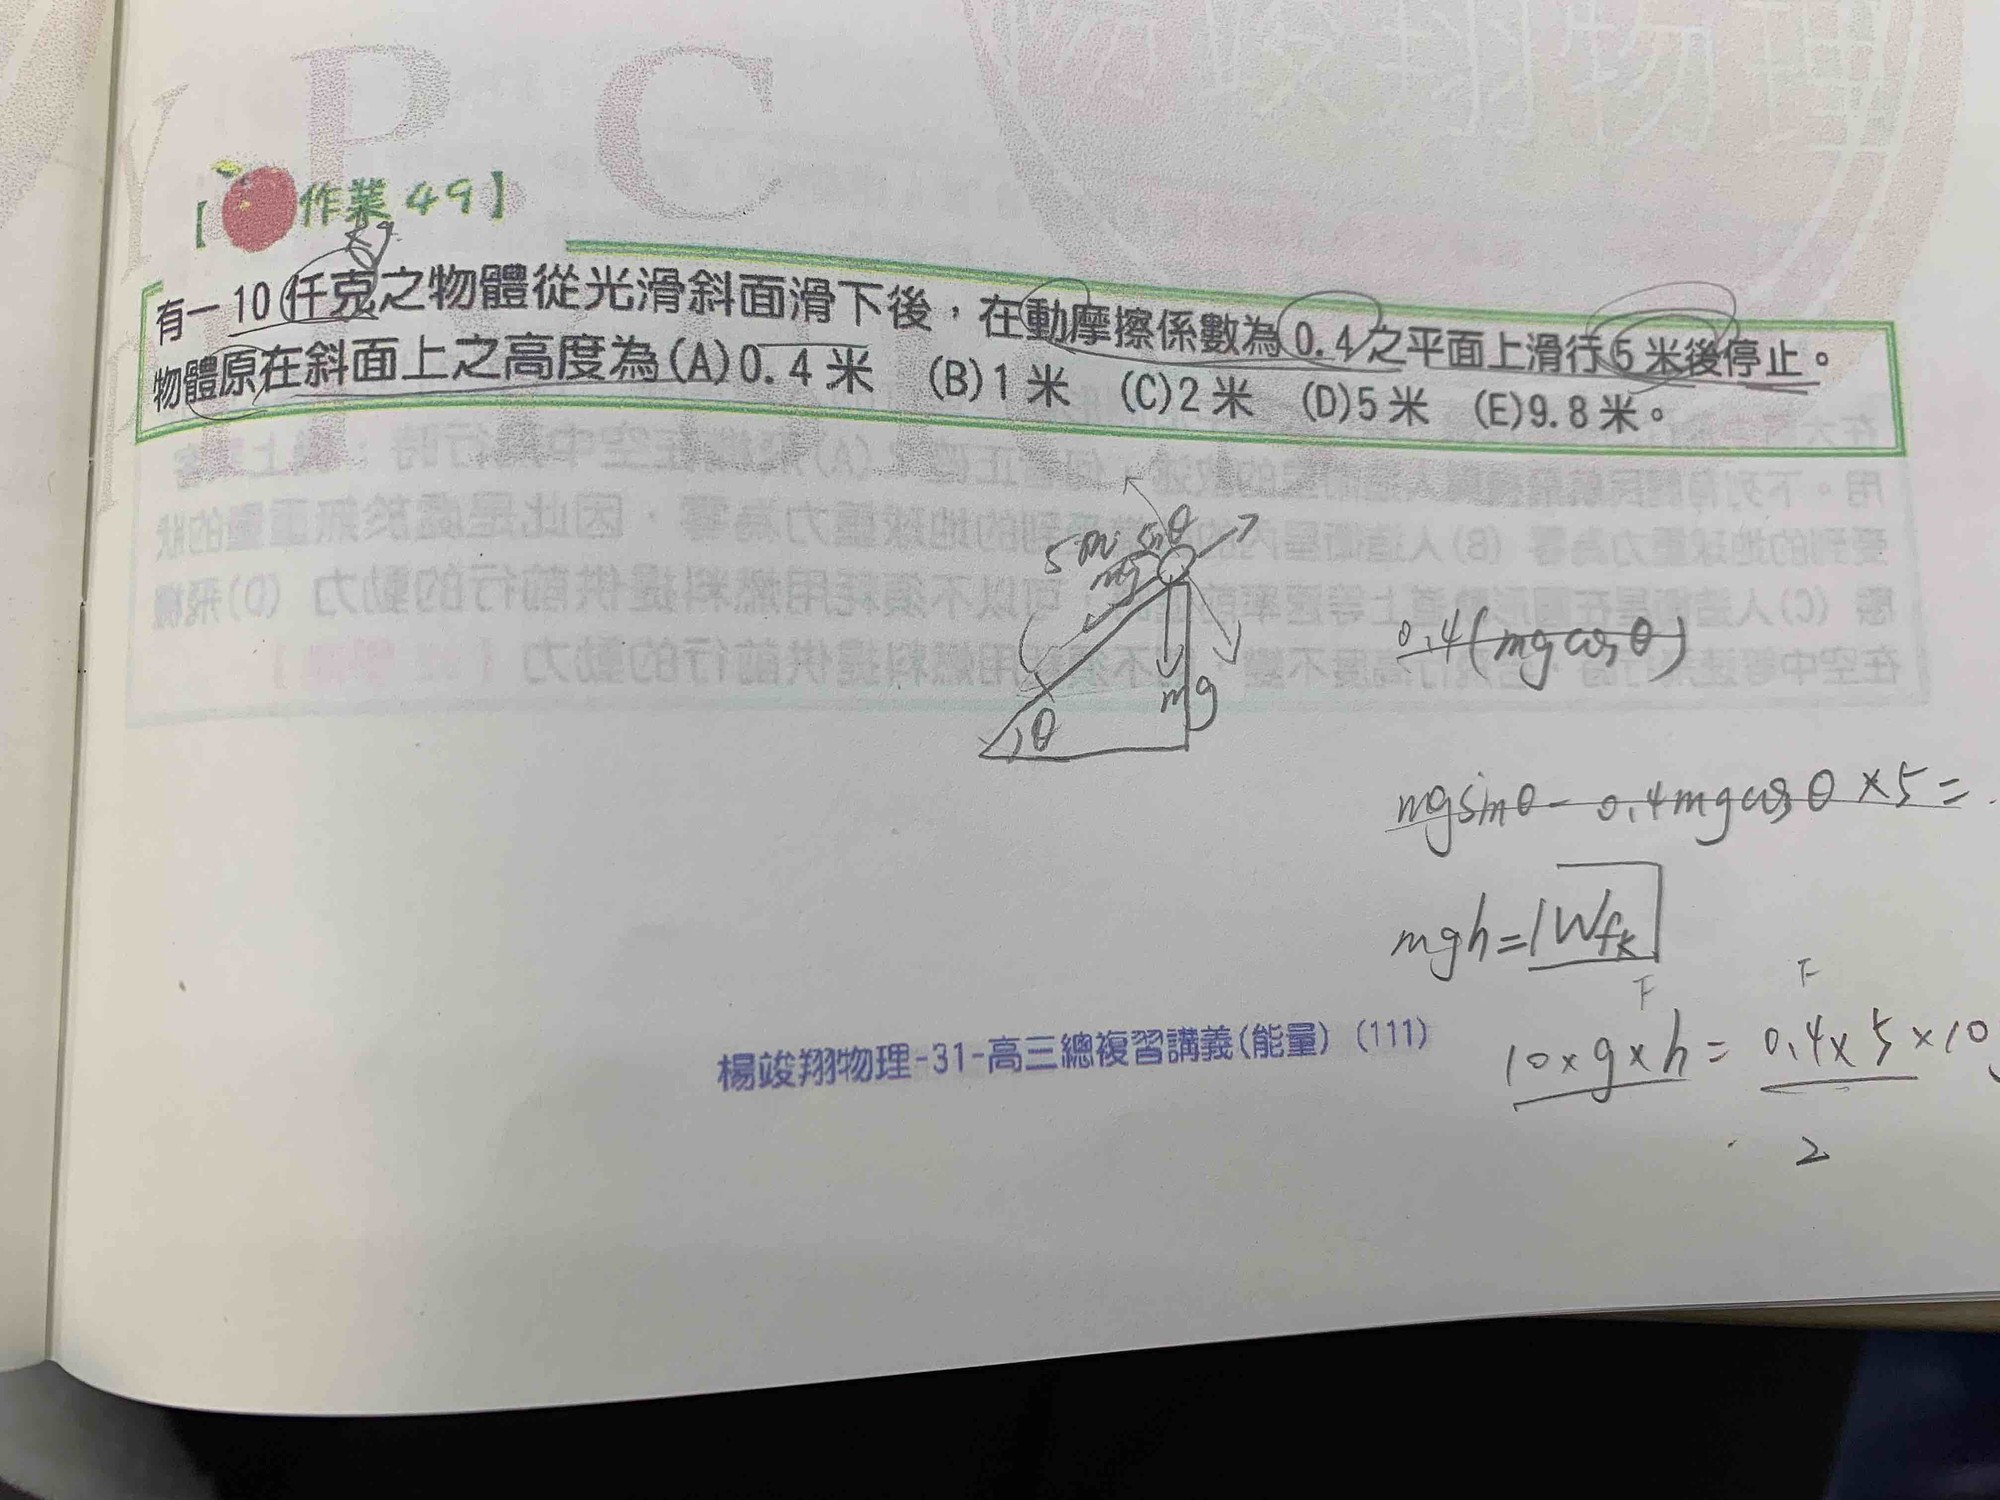 YPC
竣翔物理
【作業49】
kg
有一10仟克之物體從光滑斜面滑下後，在動摩擦係數為0.4之平面上滑行5米後停止。
物體原在斜面上之高度為(A)0.4米 (B)1米 (C)2米 (D)5米 (E)9.8米。
mg
θ
mg
0.4(mg cosθ)
mg sinθ - 0.4mg cosθ × 5 =
mgh = |Wfk|
F F
10×g×h = 0.4×5×10
2
楊竣翔物理-31-高三總複習講義(能量) (111)